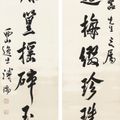 先生之屬
梅綴珍珠
篁搖碎玉
西山逸士溥儒